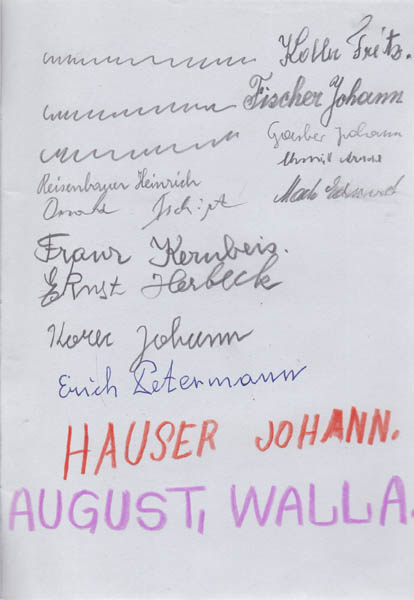 Koller Fritz.
Fischer Johann
Garber Johann
Reisenbauer Heinrich
Oswald Tschirtner
Franz Kernbeis.
Ernst Herbeck
Korec Johann
Erich Petermann
HAUSER JOHANN.
AUGUST, WALLA.